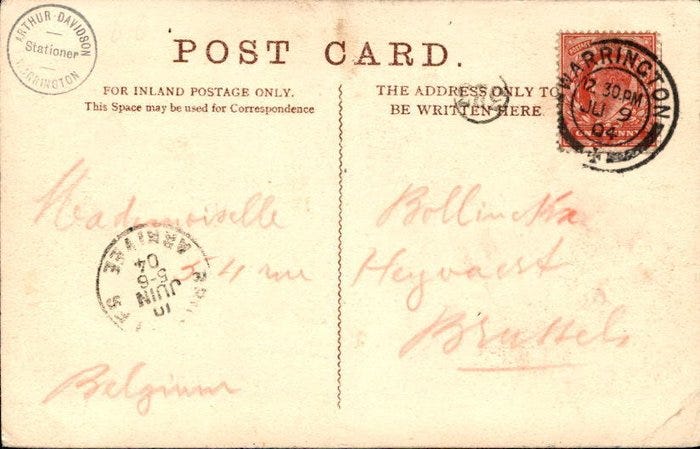 ARTHUR DAVIDSON
Stationer
WARRINGTON
POST CARD.
FOR INLAND POSTAGE ONLY.
This Space may be used for Correspondence
THE ADDRESS ONLY TO
BE WRITTEN HERE
WARRINGTON
2 30 PM
JU 9
04
Mademoiselle
Bollinckx
54 rue Heyvaert
Brussels
Belgium
ARRIVEE
04
5-6
JUIN
10